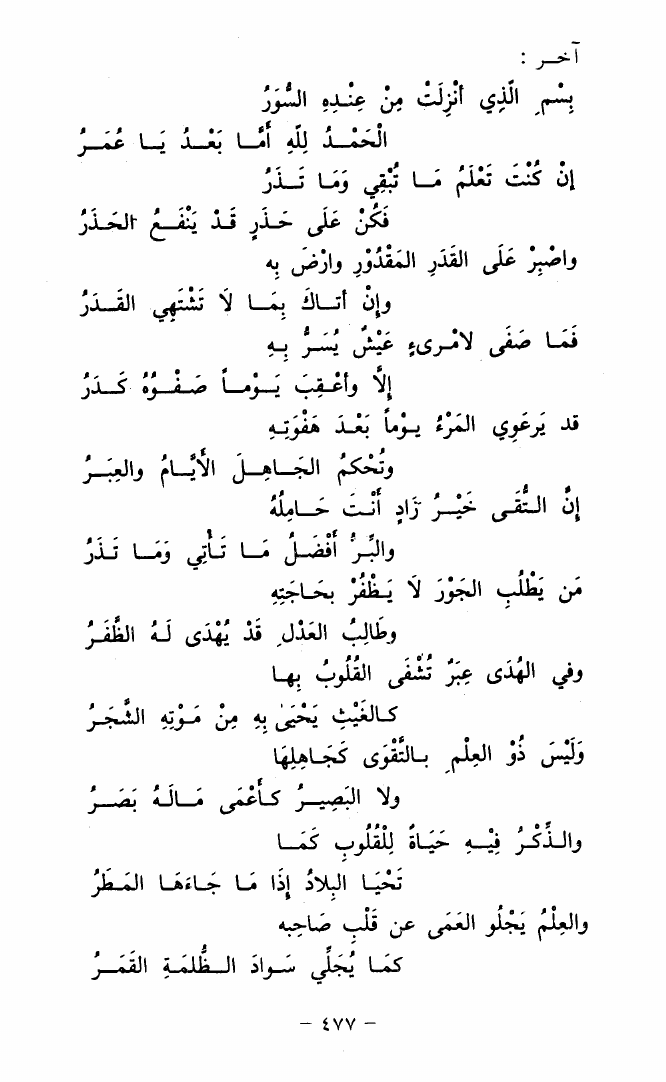 آخـر :
بِسْمِ الَّذِي أُنْزِلَتْ مِنْ عِنْدِهِ السُّوَرُ
الْحَمْـدُ لِلّهِ أَمَّـا بَعْـدُ يَـا عُمَـرُ
إنْ كُنْتَ تَعْلَمُ مَـا تُبْقِي وَمَا تَـذَرُ
فَكُنْ عَلَى حَـذَرٍ قَـدْ يَنْفَـعُ الحَذَرُ
واصْبِرْ عَلَى القَدَرِ المَقْدُوْرِ وارْضَ بِه
وإنْ أتـاكَ بِمَـا لَا تَشْتَهِي القَـدَرُ
فَمَا صَفَى لامْـرىءٍ عَيْشٌ يُسَـرُّ بِـهِ
إلَّا وأعْـقِبَ يَـوْمـاً صَـفْـوُهُ كَـدَرُ
قد يَرعَوِي المَرْءُ يـوْماً بَعْدَ هَفْوَتِـهِ
وتُحْكمُ الجَـاهِـلَ الأيَّـامُ والعِبَـرُ
إنَّ التُّقَـى خَيْـرُ زَادٍ أَنْـتَ حَـامِلُهُ
والبِّرُ أَفْضَلُ مَـا تَـأْتِي وَمَـا تَـذَرُ
مَن يَطْلُبِ الجَوْرَ لَا يَـظْفُرْ بحَـاجَتِهِ
وطَالِبُ العَدْلِ قَدْ يُهْدَى لَـهُ الظَّفَـرُ
وفي الهُدَى عِبَرٌ تُشْفَى القُلُوبُ بِهـا
كـالغَيْثِ يَحْيَىٰ بِهِ مِنْ مَـوْتِهِ الشَّجَـرُ
وَلَيْسَ ذُوْ العِلْمِ بـالتَّقْوَى كَجَـاهِلِهَا
ولا البَصِيـرُ كـأعْمَى مَـالَـهُ بَصَـرُ
والـذِّكْـرُ فِيْـهِ حَيَـاةٌ لِلْقُلُوبِ كَمَـا
تَحْيَـا البِلادُ إذَا مَـا جَـاءَهَـا المَـطَرُ
والعِلْمُ يَجْلُو العَمَى عن قَلْبِ صَاحِبه
كمَـا يُجَلِّي سَـوادَ الـظُّلمَـةِ القَمَـرُ
– ٤٧٧ –